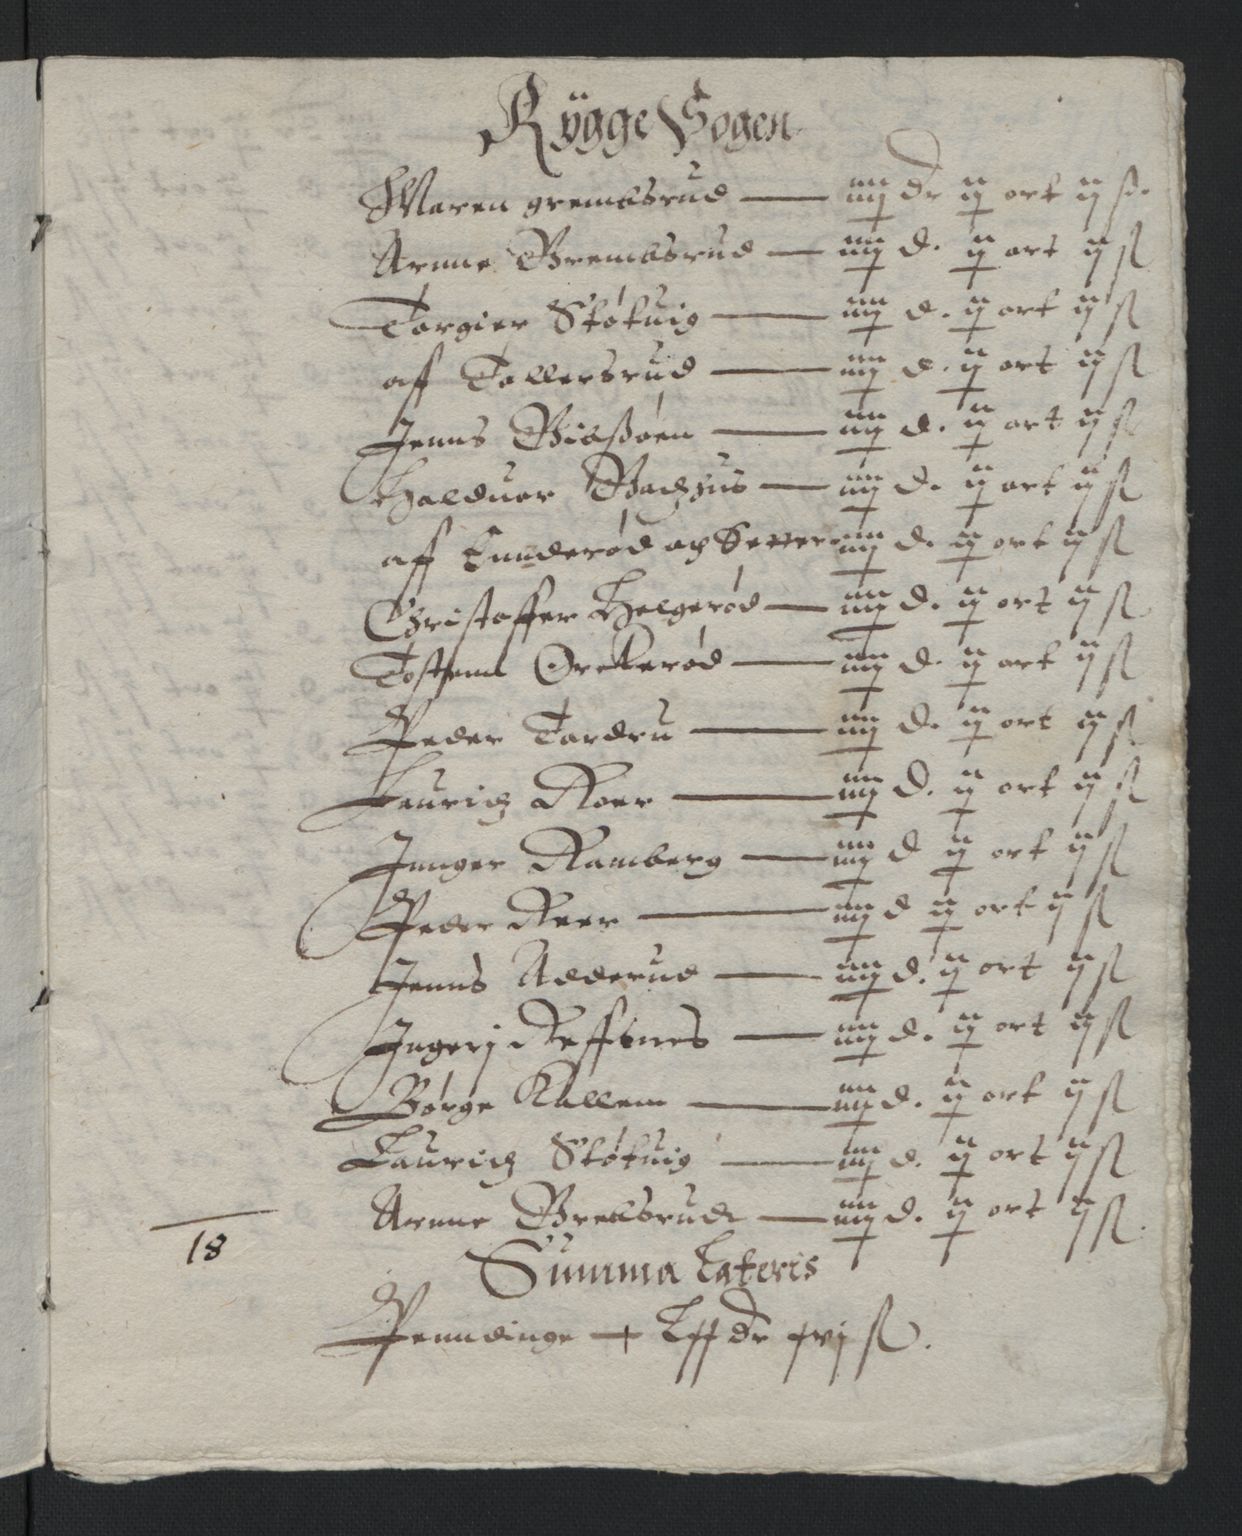 Rygge Sogen
Maren grembsrud — iiij dr ij ort ij ß.
Arnne Grembsrud — iiij d. ij ort ij ß
Torgier Støtuig — iiij d. ij ort ij ß
aff Tollersrud — iiij d. ij ort ij ß
Jenns — iiij d. ij ort ij ß
Halduor — iiij d. ij ort ij ß
aff Tunderød och Setter iiij d. ij ort ij ß
Christoffer Helgerød — iiij d. ij ort ij ß
Tostenn Ørkerød — iiij d. ij ort ij ß
Peder Tardru — iiij d. ij ort ij ß
Lauridz Roer — iiij d. ij ort ij ß
Junger Ramberg — iiij d ij ort ij ß
Peder Reer — iiij d ij ort ij ß
Jenns Adderud — iiij d. ij ort ij ß
Ingerj Reffsnes — iiij d. ij ort ij ß
Børge Kallem — iiij d. ij ort ij ß
Lauridz Støtuig — iiij d. ij ort ij ß
Arnne Grebsrud — iiij d. ij ort ij ß
18
Summa Lateris
Penndinge — Lxx dr xvj ß.